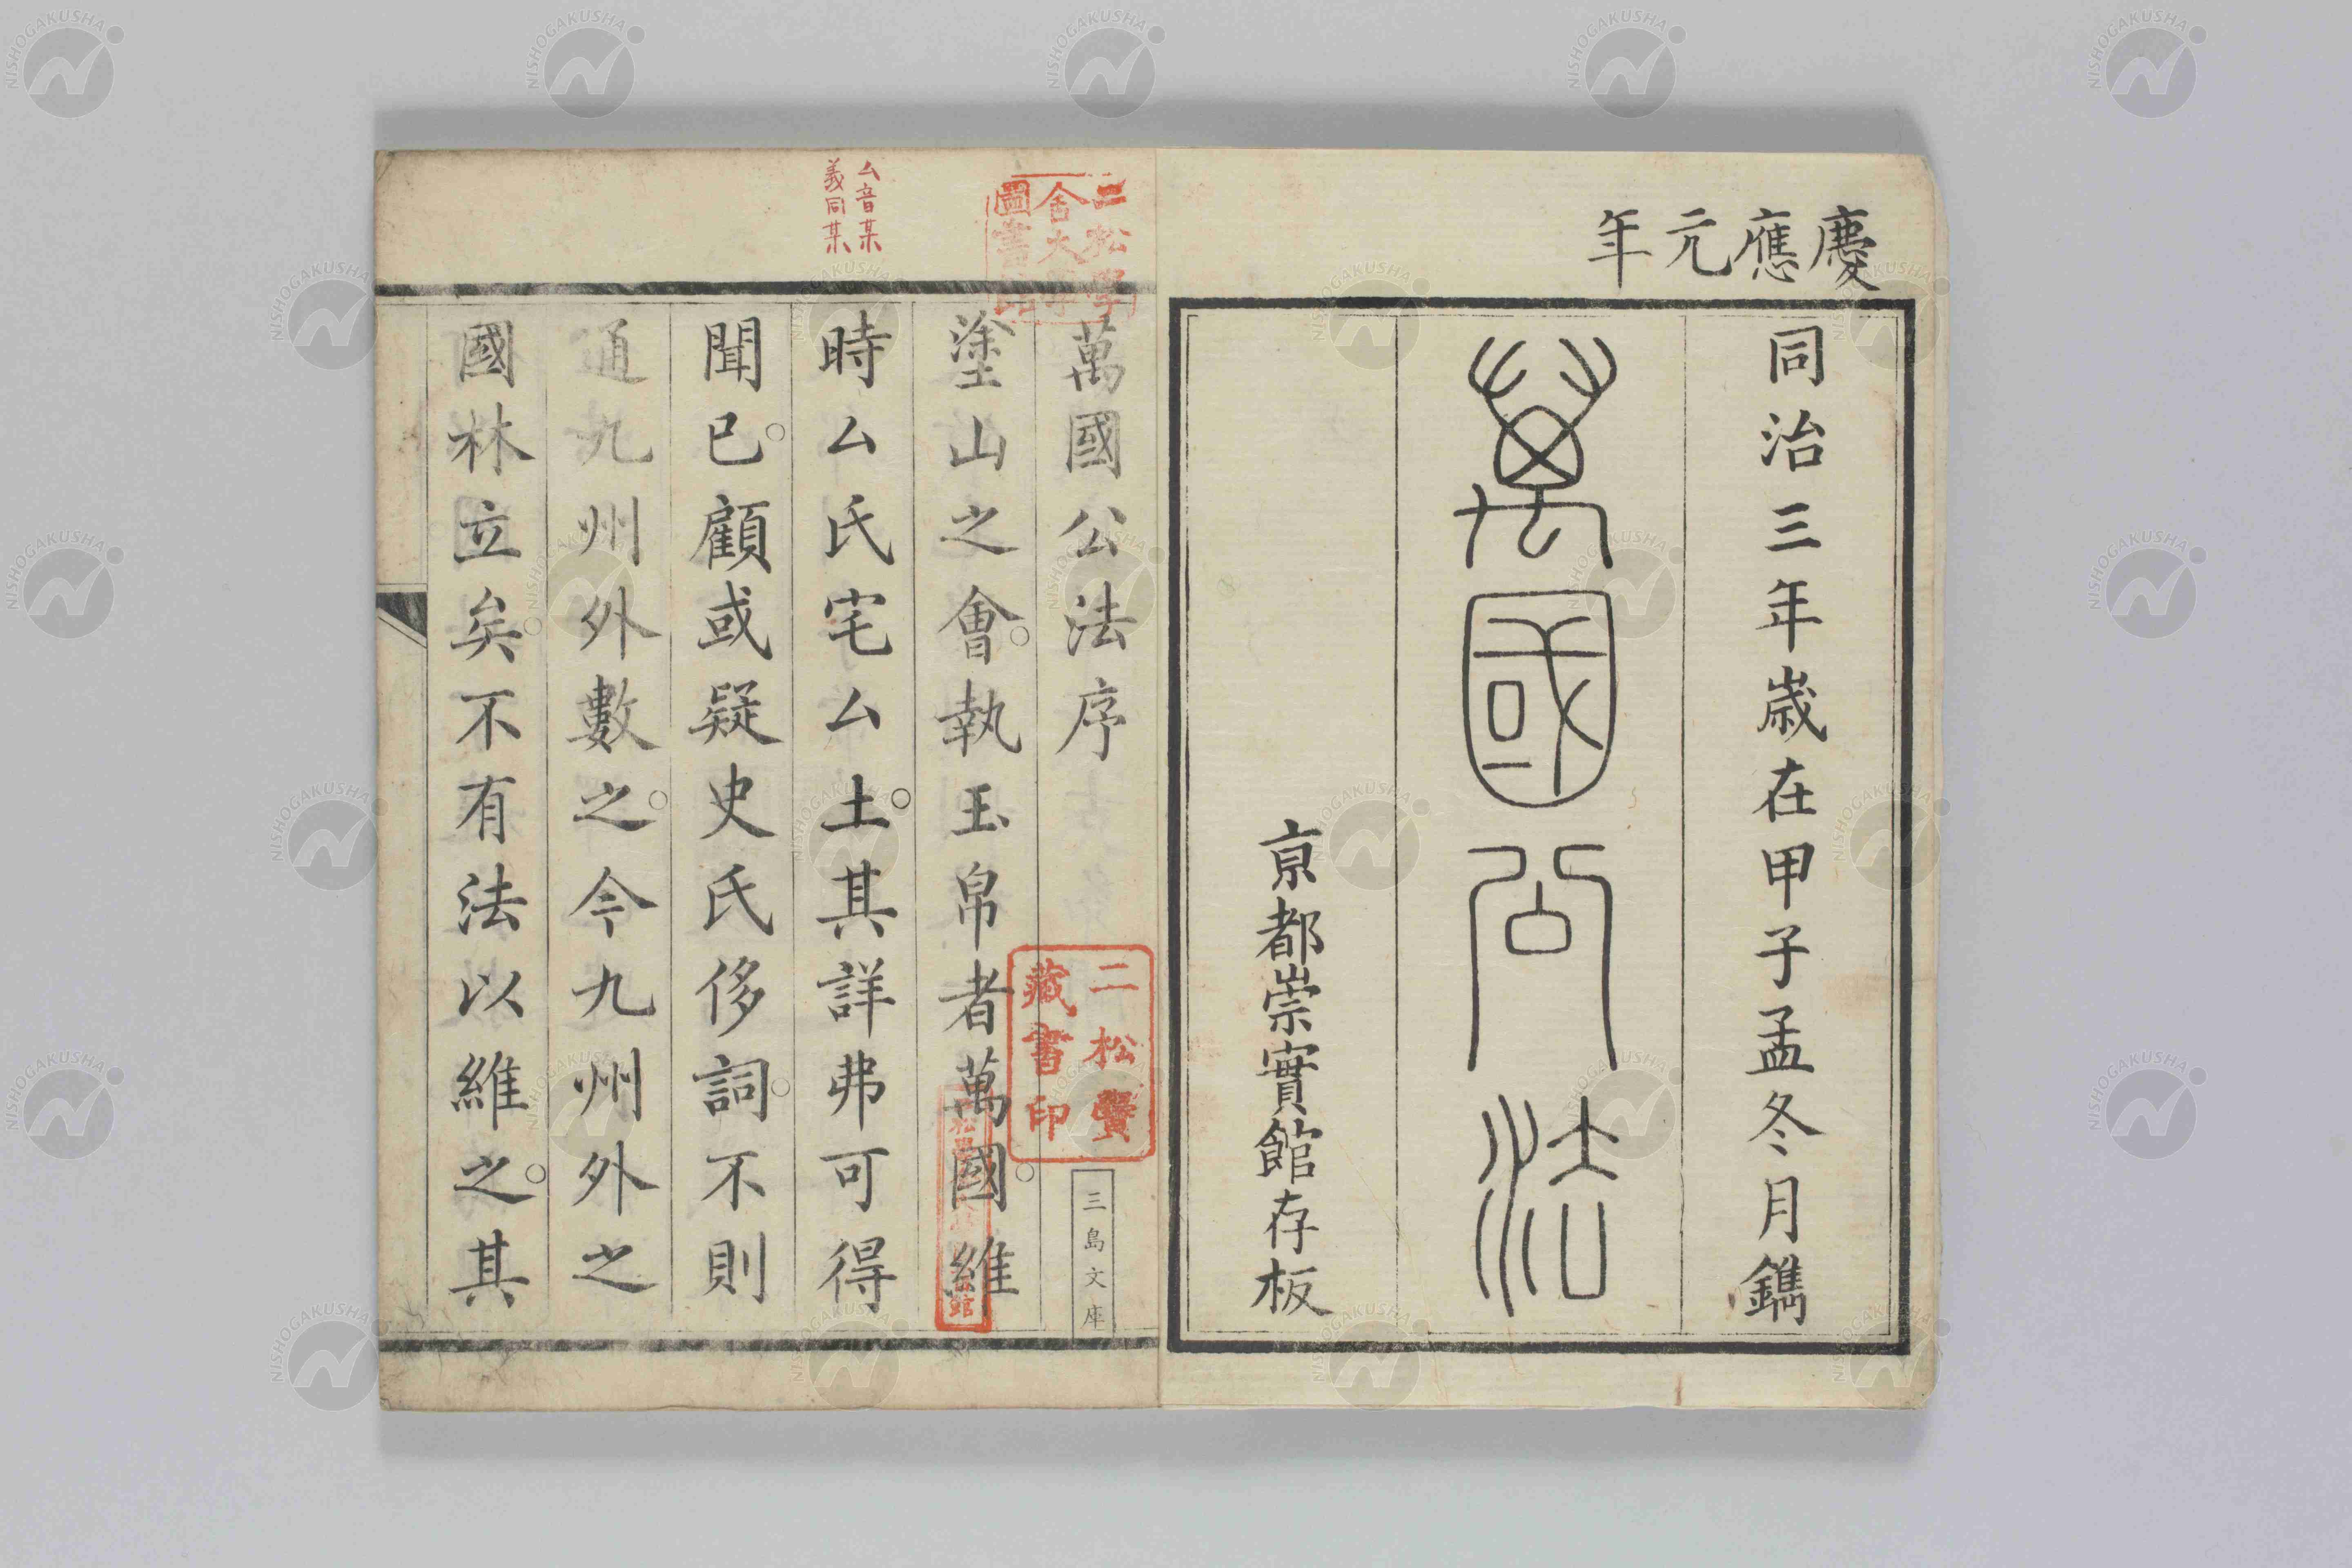 慶應元年
同治三年歲在甲子孟冬月鐫
萬國公法
京都崇實館存板
二松學
舍大學
圖書館
萬國公法序
二松學
藏書印
三島文庫
塗山之會。執玉帛者萬國。維
厶音某
義同某
時厶氏宅厶土。其詳弗可得
聞已。顧或疑史氏侈詞。不則
通九州外數之。今九州外之
國林立矣。不有法以維之。其
NISHOGAKUSHA